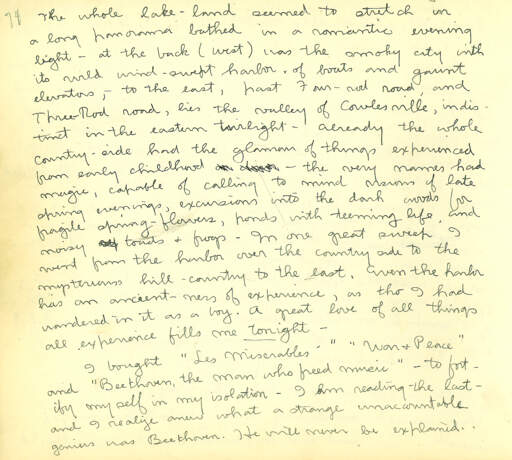 74
The whole lake-land seemed to stretch in
a long panorama bathed in a romantic evening
light – at the back (west) was the smoky city with
its wild wind-swept harbor, of boats and gaunt
elevators, – to the east, past Four-rod road, and
Three Rod road, lies the valley of Cowlesville, indis-
tinct in the eastern twilight – already the whole
country-side had the glamour of things experienced
from early childhood – the very names had
magic, capable of calling to mind visions of late
spring evenings, excursions into the dark woods for
fragile spring-flowers, ponds with teeming life, and
noisy toads & frogs – In one great sweep I
went from the harbor over the country side to the
mysterious hill-country to the east. Even the harbor
has an ancient-ness of experience, as tho I had
wandered in it as a boy. A great love of all things
all experience fills me tonight –
I bought "Les Miserables" "War & Peace"
and "Beethoven, the man who freed music" – to fort-
ify myself in my isolation – I am reading the last –
and I realize anew what a strange unaccountable
genius was Beethoven. He will never be explained..